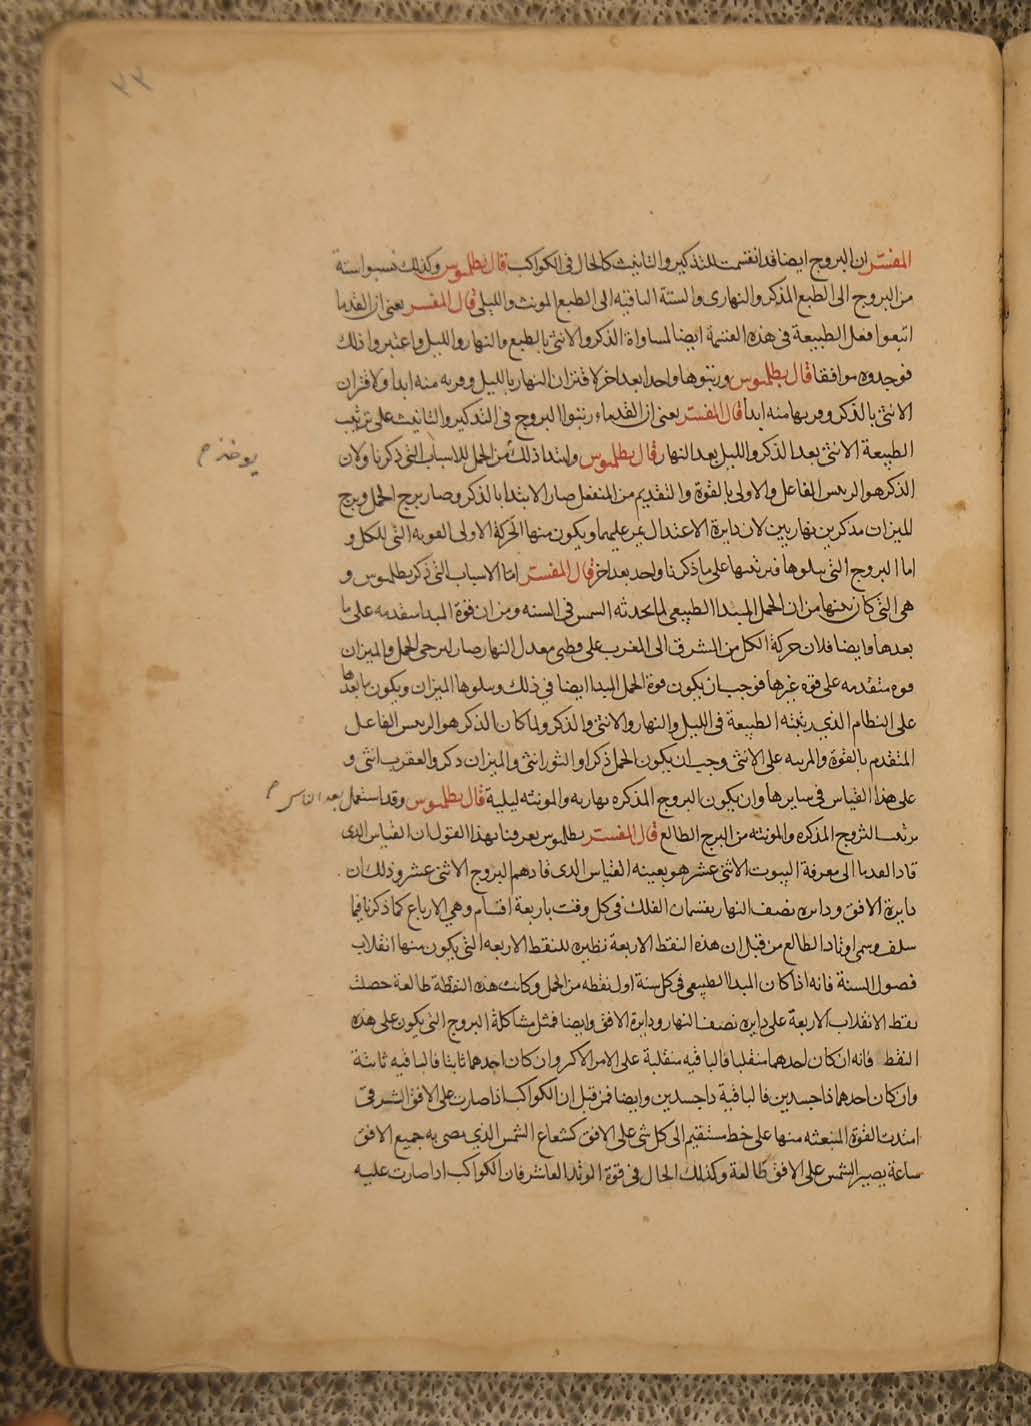 ٢٢
المفسر ان البروج ايضا قد انقسمت للتذكير والتانيث كالحال في الكواكب قال بطلميوس وكذلك نسبوا ستة
من البروج الى الطبع المذكر والنهاري والستة الباقية الى الطبع المونث والليلي قال المفسر يعني ان القدما
اتبعوا فعل الطبيعة في هذه القسمة ايضا لمساواة الذكر والانثى بالطبع والنهار والليل واعتبروا ذلك
فوجدوه موافقا قال بطلميوس ورتبوها واحدا بعد اخر لاقتران النهار بالليل وقربه منه ابدا ولاقتران
الانثى بالذكر وقربها منه ابدا قال المفسر يعني ان القدماء رتبوا البروج في التذكير والتانيث على ترتيب
الطبيعة الانثى بعد الذكر والليل بعد النهار قال بطلميوس وابتدا ذلك من الحمل للاسباب التي ذكرنا ولان
يوخذ م
الذكر هو الرييس الفاعل والاولى بالقوة والتقديم من المنفعل صار الابتدا بالذكر وصار برج الحمل وبرج
الميزان مذكرين نهاريين لان دايرة الاعتدال تمر عليهما ويكون منها الحركة الاولى القوية التي للكل و
اما البروج التي يتلوها فترتيبها على ما ذكرنا واحد بعد اخر قال المفسر اما الاسباب التي ذكر بطلميوس و
هي التي كان بينها من ان الحمل المبدا الطبيعي لما يحدثه الشمس في السنه ومن ان قوة المبدا متقدمه على ما
بعدها وايضا فلان حركة الكل من المشرق الى المغرب على قطبي معدل النهار صار لبرجي الحمل والميزان
قوه متقدمه على قوة غيرها فوجب ان يكون قوة الحمل المبدا ايضا في ذلك ويتلوها الميزان ويكون ما بعدها
على النظام الذي رتبته الطبيعة في الليل والنهار والانثى والذكر ولما كان الذكر هو الرييس الفاعل
المتقدم بالقوة والمرتبه على الانثى وجب ان يكون الحمل ذكرا والثور انثى والميزان ذكر والعقرب انثى و
على هذا القياس في سايرها وان يكون البروج المذكره نهاريه والمونثه ليلية قال بطلميوس وقد استعمل بعد الناس م
ترتيب البروج المذكره والمونثه من البرج الطالع قال المفسر بطلميوس يعرفنا بهذا القول ان القياس الذي
قاد القدما الى معرفة البيوت الاثنى عشر هو بعينه القياس الذي قادهم البروج الاثنى عشر وذلك ان
دايرة الافق ودايره نصف النهار يقسمان الفلك في كل وقت باربعة اقسام وهي الارباع كما ذكرنا فيما
سلف وسمي اوتاد الطالع من قبل ان هذه النقط الاربعة نظيره للنقط الاربعه التي يكون منها انقلاب
فصول السنة فانه اذا كان المبدا الطبيعي في كل سنة اول نقطه من الحمل وكانت هذه النقطة طالعة حصلت
نقط الانقلاب الاربعة على دايره نصف النهار ودايرة الافق وايضا فمثل مشاكلة البروج التي يكون على هذه
النقط فانه ان كان احدهما منقلبا فالباقيه منقلبة على الامر الاكثر وان كان احدهما ثابتا فالباقيه ثابتة
وان كان احدهما ذا جسدين فالباقية ذا جسدين وايضا فمن قبل ان الكواكب اذا صارت على الافق الشرقي
امتدت القوة المنبعثه منها على خط مستقيم الى كل شي على الافق كشعاع الشمس الذي يضي به جميع الافق
ساعة يصير الشمس على الافق طالعة وكذلك الحال في قوة الوتد العاشر فان الكواكب اذا صارت عليه